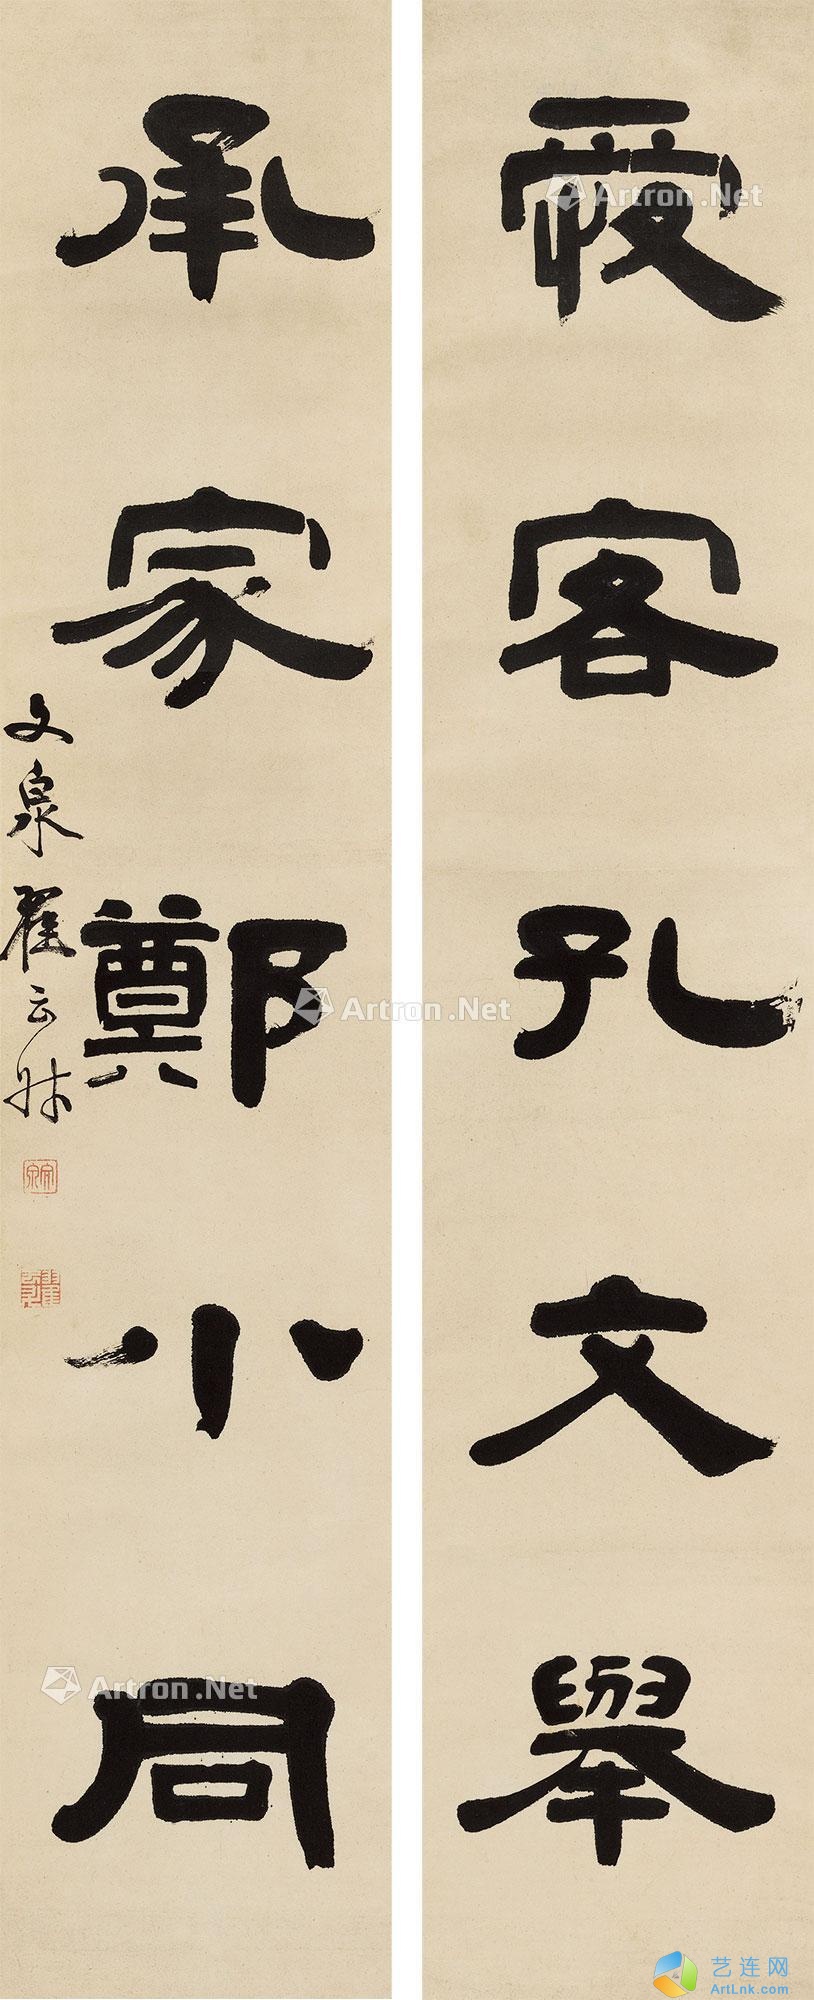 爱客孔文舉
承家鄭小同
文泉翟云升
Artron.Net
Artron.Net
Artron.Net
艺连网
ArtLnk.com